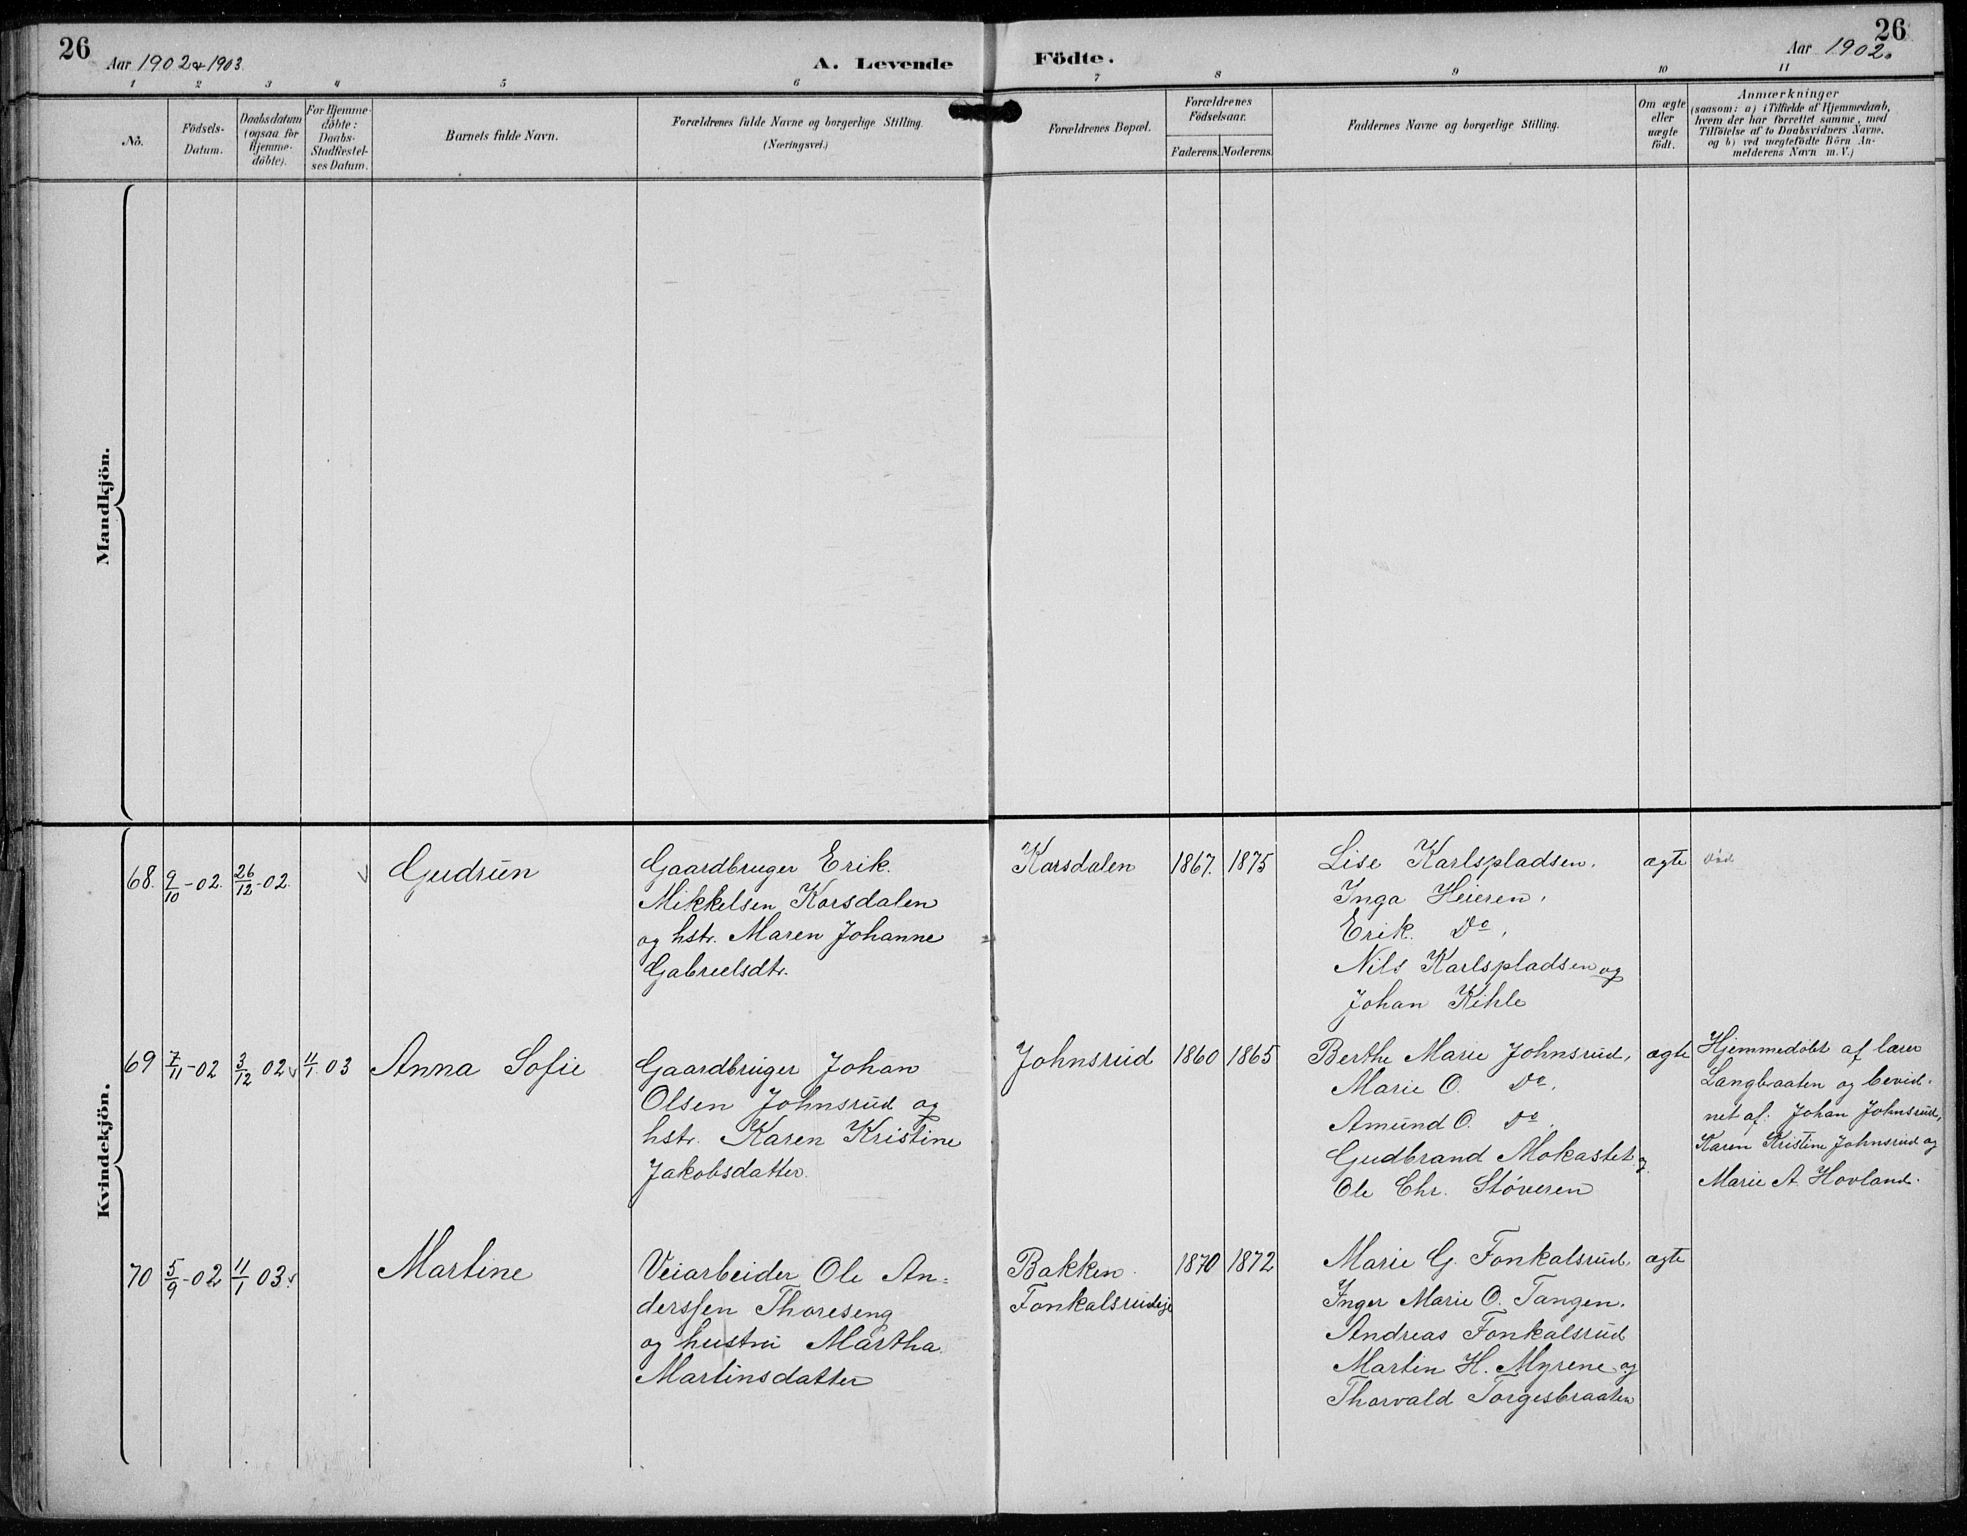 26
Aar 1902 & 1903.
A. Levende
Födte.
Aar 1902.
26
1 2 3 4 5 6 7 8 9 10 11
No.
Födsels-
Datum.
Daabsdatum
(ogsaa for
Hjemme-
döbte).
For Hjemme-
döbte:
Daabs-
Stadfæstel-
ses Datum.
Barnets fulde Navn.
Forældrenes fulde Navne og borgerlige Stilling.
(Næringsvei.)
Forældrenes Bopæl.
Forældrenes
Födselsaar.
Faderens. Moderens.
Faddernes Navne og borgerlige Stilling.
Om ægte
eller
uægte
födt.
Anmærkninger
(saasom: a) i Tilfælde af Hjemmedaab,
hvem der har forrettet samme, med
Tilföielse af to Daabsvidners Navne.
og b) ved uægtefödte Börn An-
melderens Navn m. V.)
Mandkjön.
Kvindekjön.
68. 9/10-02. 26/12-02.
Gudrun
Gaardbruger Erik
Mikkelsen Korsdalen
og hstr. Maren Johanne
Gabrielsdtr.
Korsdalen
1867. 1875
Lise Karlspladsen.
Inga Heieren.
Erik Do.
Nils Karlspladsen og
Johan Kihle
ægte
Död
69 7/11-02 3/12 02 11/1 03
Anna Sofie
Gaardbruger Johan
Olsen Johnsrud og
hstr. Karen Kristine
Jakobsdatter.
Johnsrud
1860 1865
Berthe Marie Johnsrud,
Marie O. Do.
Amund O. Do.
Gudbrand Mokastet og
Ole Chr. Støveren
ægte
Hjemmedøbt af lærer
Langbraaten og bevid-
net af: Johan Johnsrud,
Karen Kristine Johnsrud og
Marie A. Hovland.
70 5/9-02 11/1 03.
Martine
Veiarbeider Ole An-
derssen Thoreseng
og hustru Martha
Martinsdatter
Bakken
Fonkalsrudeje
1870 1872
Marie G. Fonkalsrud.
Inger Marie O. Tangen.
Andreas Fonkalsrud
Martin H. Myrene og
Thorvald Torgesbraaten
ægte